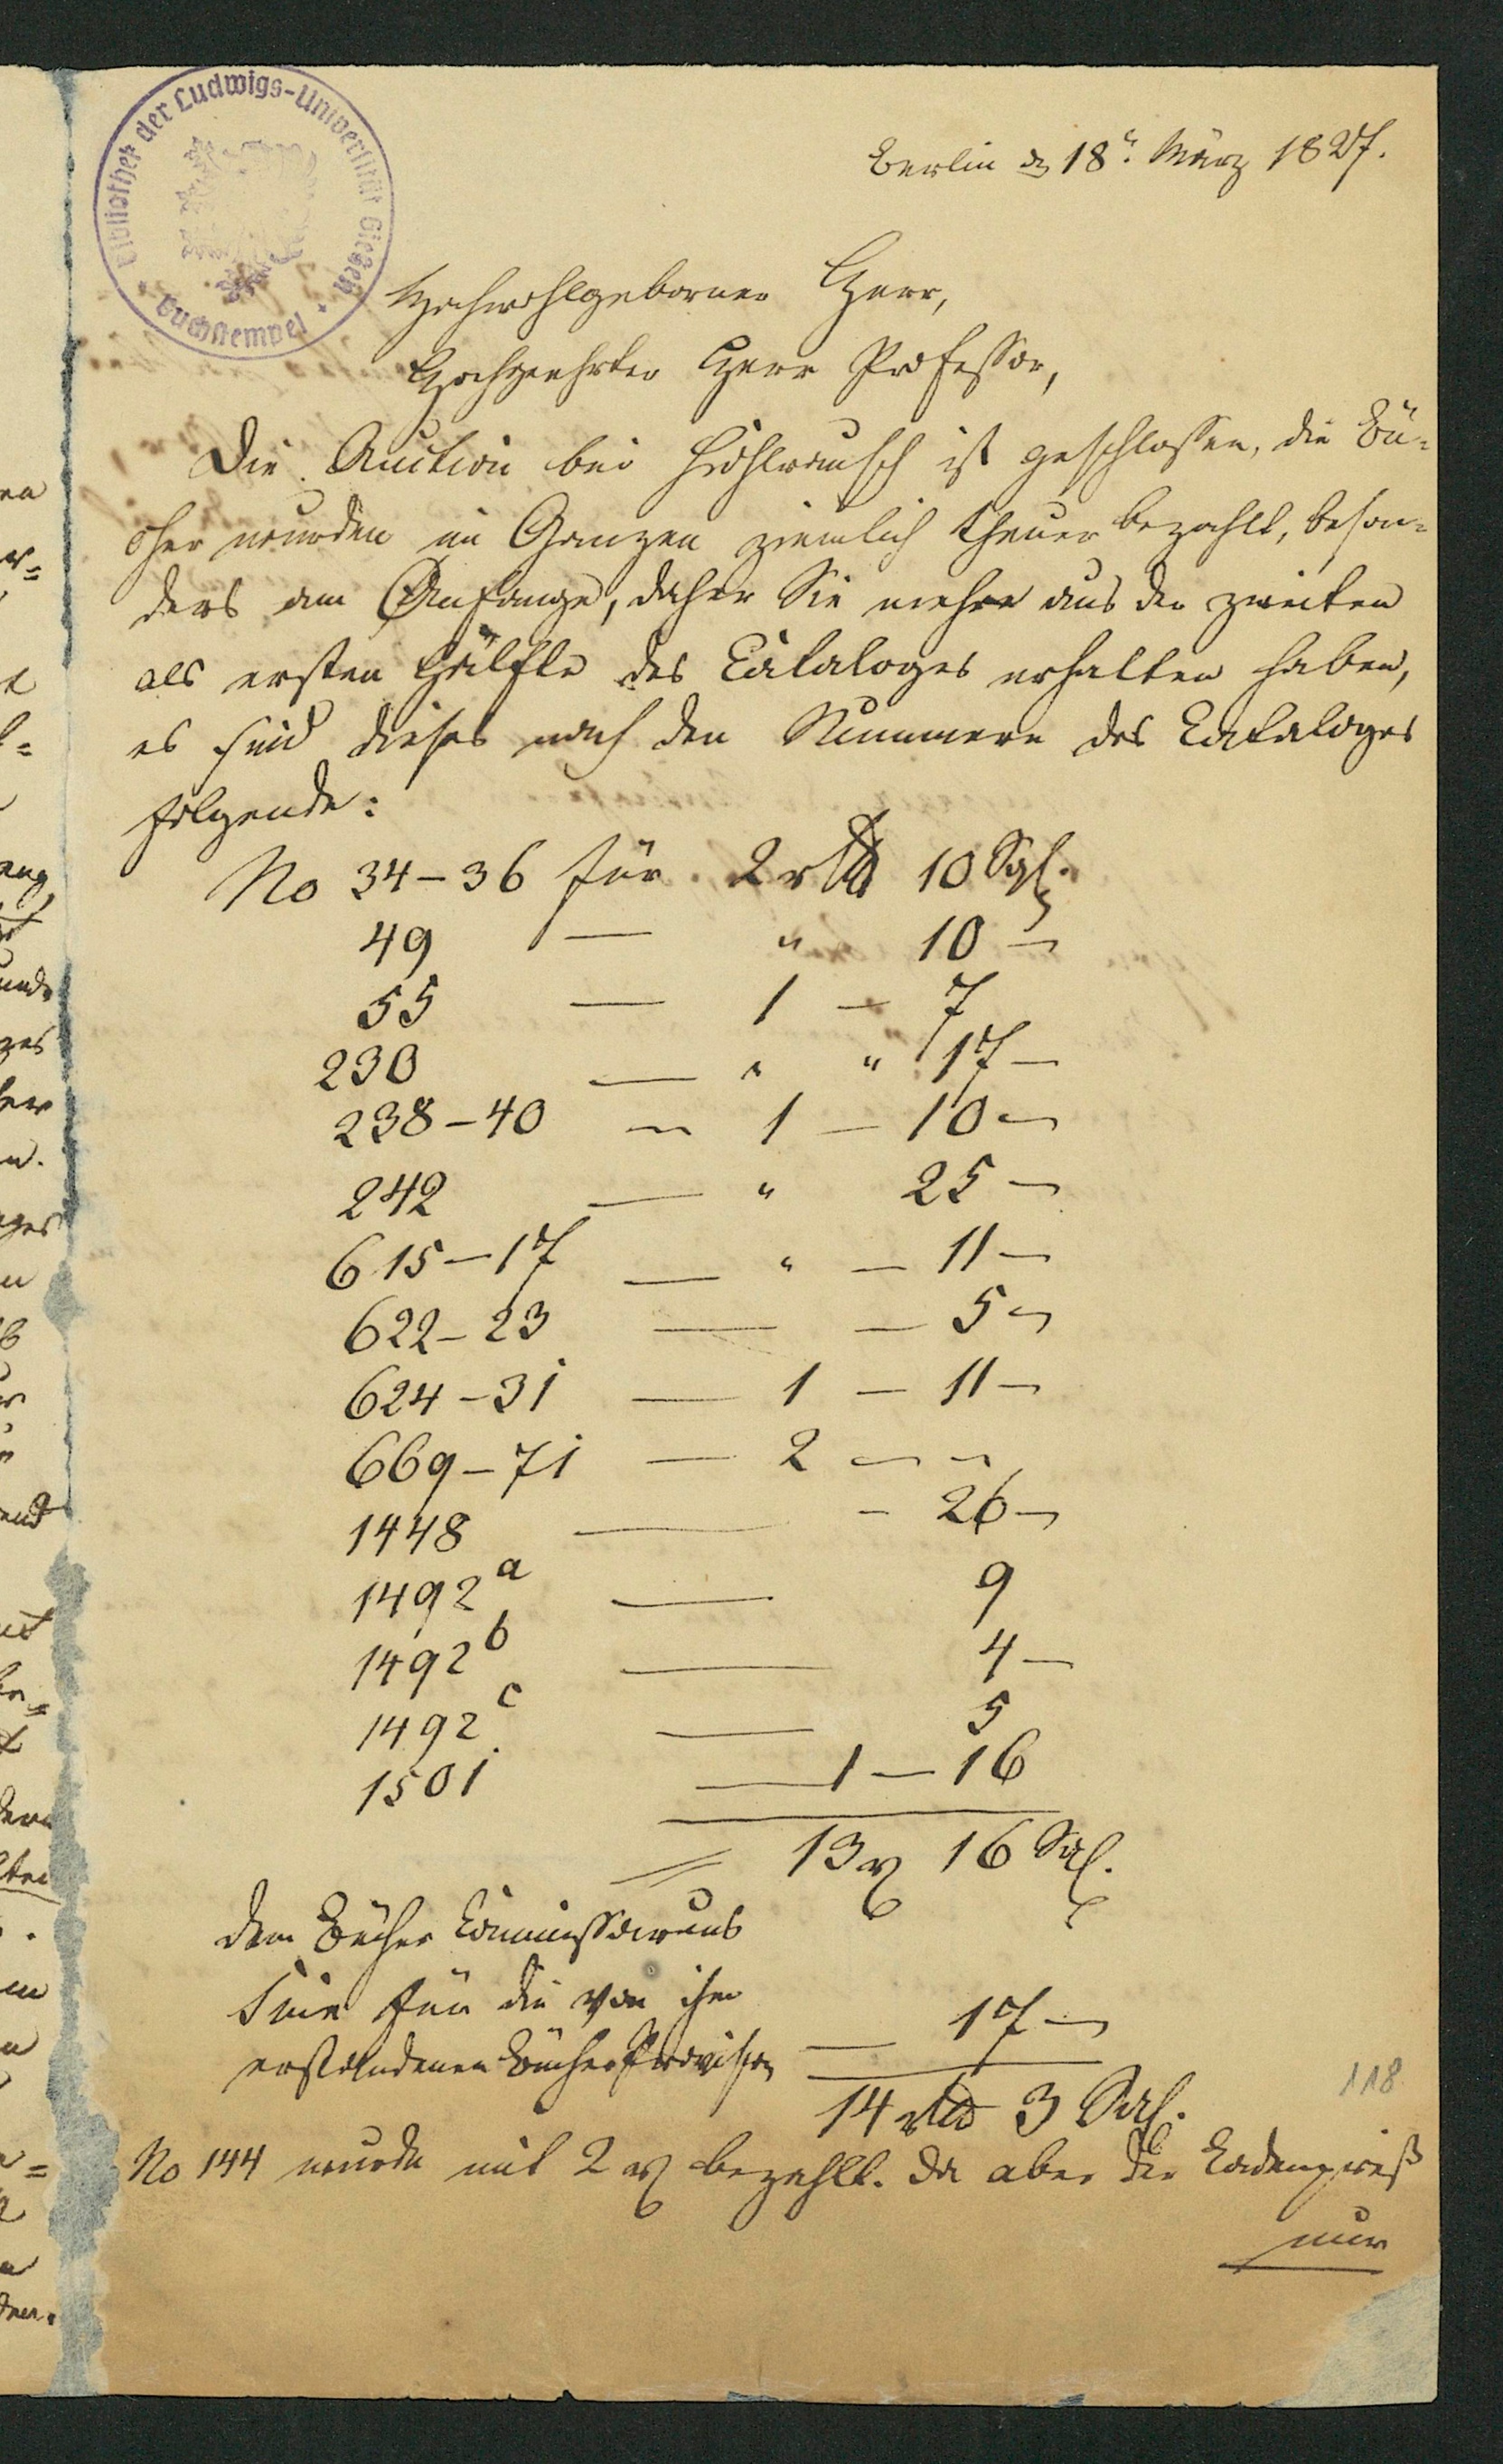 Bibliothek der Ludwigs-Universität Gießen
Buchstempel
Berlin d 18t. März 1827.
Hochwohlgeborner Herr,
Hochgeehrter Herr Professor,
Die Auction bei ist geschlossen, die Bü-
cher wurden im Ganzen ziemlich theuer bezahlt, beson-
ders am Anfange, daher Sie mehre aus der zweiten
als ersten Hälfte des Cataloges erhalten haben,
es sind dieses nach den Nummern des Cataloges
folgende:
No 34-36 für 2 rtl 10 Sgl.
49 — " 10 —
55 — 1 — 7
230 — " " 17 —
238-40 — 1 — 10 —
242 — " 25 —
615-17 — " — 11 —
622-23 — — 5 —
624-31 — 1 — 11 —
669-71 — 2 — —
1448 — — 26 —
1492 a — 9
1492 b — 4 —
1492 c — 5
1501 — 1 — 16
= 13 rl 16 Sgl.
dem Bücher Commissarius
für die von ihm
erstandenen Bücher Provision — 17 —
14 rtl 3 Sgl.
118
No 144 wurde mit 2 rl bezahlt. Da aber der Ladenpreiß
nur